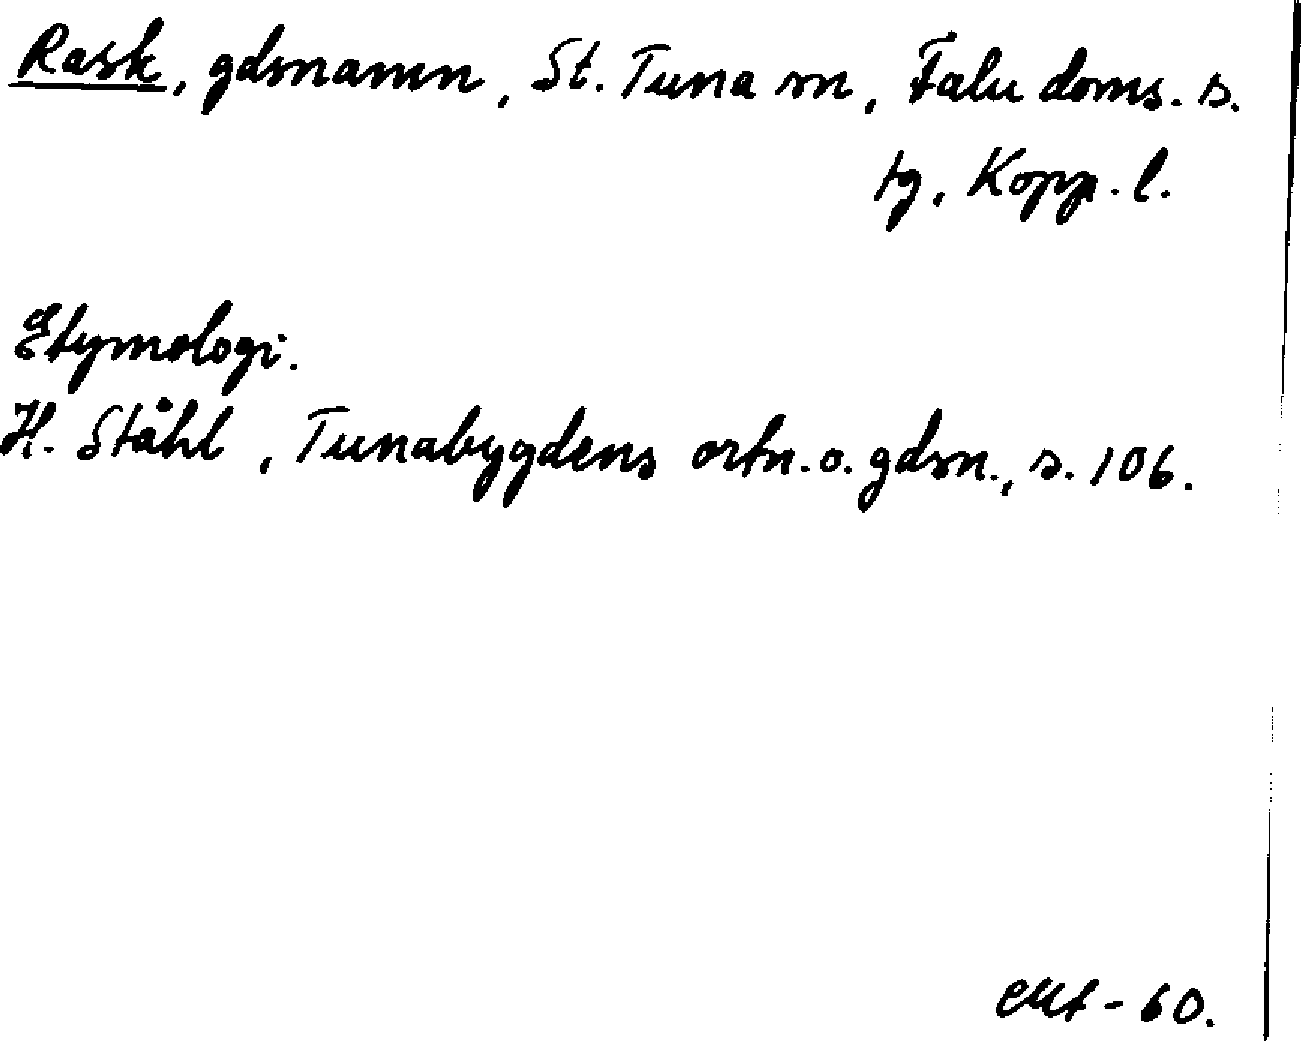 Rask, gdsnamn, St. Tuna sn, Falu doms. s.
tg, Kopp. l.
Etymologi.
H. Ståhl, Tunabygdens ortn. o. gdsn., s. 106.
- 60.